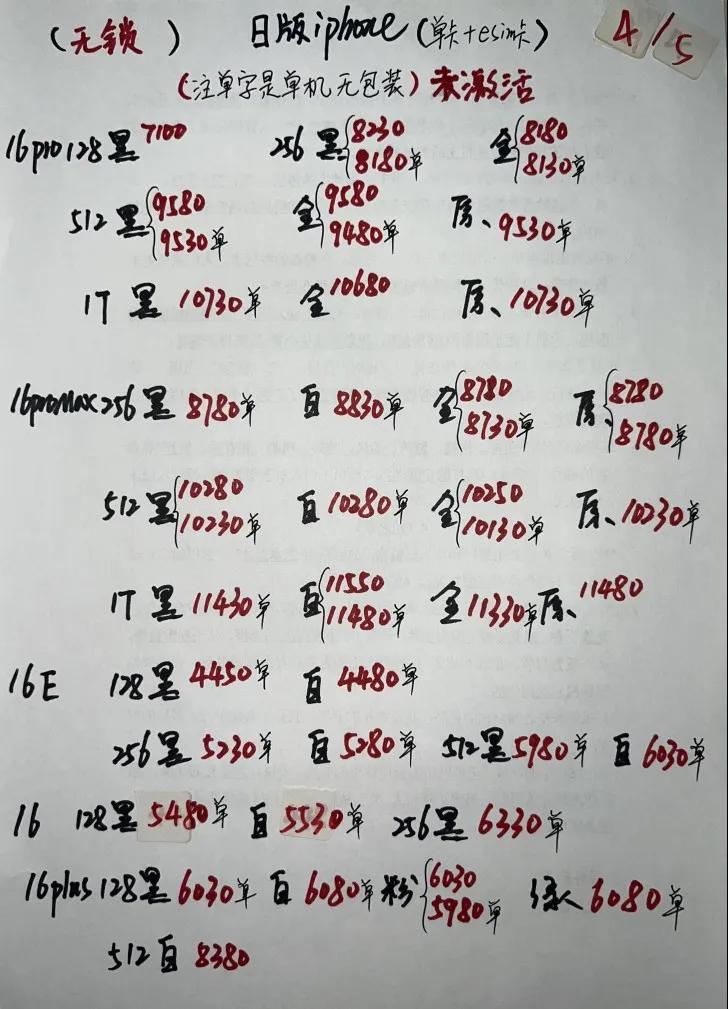 (无锁) 日版iphone(单卡+esim卡) 4/5
(注单字是单机无包装)未激活
16pro128黑7100 256黑{8230 金{8180
8180单 8130单
512黑{9580 金{9580 原、9530单
9530单 9480单
1T黑10730单 金10680 原、10730单
16promax256黑8780单 白8830单 金{8780 原、{8780
8730单 8780单
512黑{10280 白10280单 金{10250 原、10230单
10230单 10130单
1T黑11430单 白{11550 金11330单 原、11480
11480单
16E 128黑4450单 白4480单
256黑5230单 白5280单 512黑5980单 白6030单
16 128黑5480单 白5530单 256黑6330单
16plus128黑6030单 白6080单 粉{6030 绿6080单
5980单
512白8380